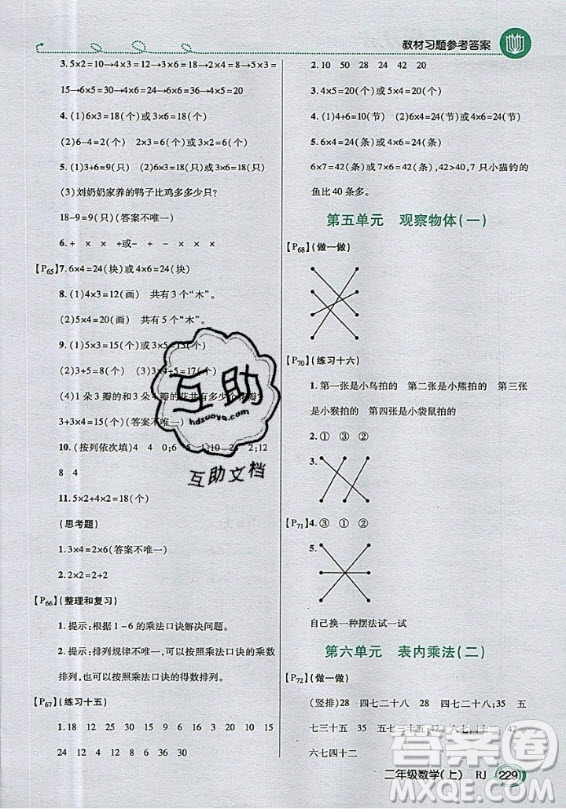 教材习题参考答案
3. 5×2=10→4×3=12→3×5=15→
6×5=30→4×6=24→3×6=18→5×3=
15→4×5=20
4. (1)6×3=18(个)或3×6=18(个)
(2)6-4=2(个) 2×3=6(个)
5. (1)3+6=9(只) (2)3×6=18(只)
(3)刘奶奶家养的鸭子比鸡多多少只?
18-9=9(只)(答案不唯一)
6. + × × ÷或- - × ×
【P65】7. 6×4=24(块)或4×6=24(块)
8. (1)4×3=12(画) 共有3个“木”。
(2)4×5=20(画) 共有5个“木”。
9. (1)3×5=15(个)或5×3=15(个)
(2)3+5=8(个)
3+3×4=15(个)(答案不唯一)
10. (按列依次填)4 3 24 2 12
8 4
11. 5×2+4×2=18(个)
(思考题)
1. 3×4=2×6(答案不唯一)
2. 2×2=2+2
【P66】(整理和复习)
1. 提示:根据1~6的乘法口诀解决问题。
2. 提示:排列规律不唯一,可以按照乘法口诀
排列,也可以按照乘法口诀的得数排列。
【P67】(练习十五)
1. 18 12 25 30 6 20 36 10 15
24 12 30 4 24 8
2. 10 50 28 24 20
3. 4×5=20(个)或5×4=20(个)
4. (1)4+6=10(节) (2)4×6=24(节)
5. 6×4=24(条)或4×6=24(条)
6×7=42(条)或7×6=42(条),42>40,所以小猫钓的
鱼比40条多。
第五单元 观察物体(一)
【P68】(做一做)
【P70】(练习十六)
1. 第一张是小鸟拍的 第二张是小熊拍的 第三张
是小猴拍的 第四张是小袋鼠拍的
2. ① ③ ②
3.
【P71】4. ③ ① ②
5.
自己换一种摆法试一试
第六单元 表内乘法(二)
【P72】(做一做)
(竖排)28 四七二十八 28 四七二十八 35 五
七三十五 35 五七三十五 42 六七四十二 42
六七四十二
互助
hdzuoye.com
互助文档
答案圈
MXQE.COM
二年级数学(上) RJ 229